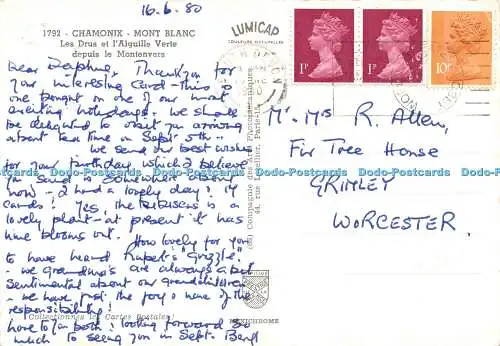 16.6.80
1792 - CHAMONIX - MONT BLANC
Les Drus et l'Aiguille Verte
depuis le Montenvers
LUMICAP
COULEURS NATURELLES
Dear Daphne, Thankyou for
your interesting card - this is
one bought on one of our most
exciting holidays. We should
be delighted to visit you arriving
about tea time on Sept 5th -
We send our best wishes
for your birthday, which I believe
you said is somewhere about
now - I had a lovely day: 14
cards! Yes, the hibiscus is a
lovely plant - at present it has
nine blooms out. How lovely for you
to have heard Rupert's "Grizzle"
- we Grandma's are always a bit
sentimental about our grandchildren
- we have just the joy & none of the
responsibility!
love to you both: looking forward so
much to seeing you in Sept.
Collectionnez les Cartes Postales!
(es) Compagnie des Arts Photomécaniques
44, rue Letellier, Paris-15
MEXICHROME
1P
1P
10P
Mr. Mrs R. Allen,
Fir Tree House
GRIMLEY
WORCESTER.
Postcards Depot Postcards Depot Postcards Depot Postcards